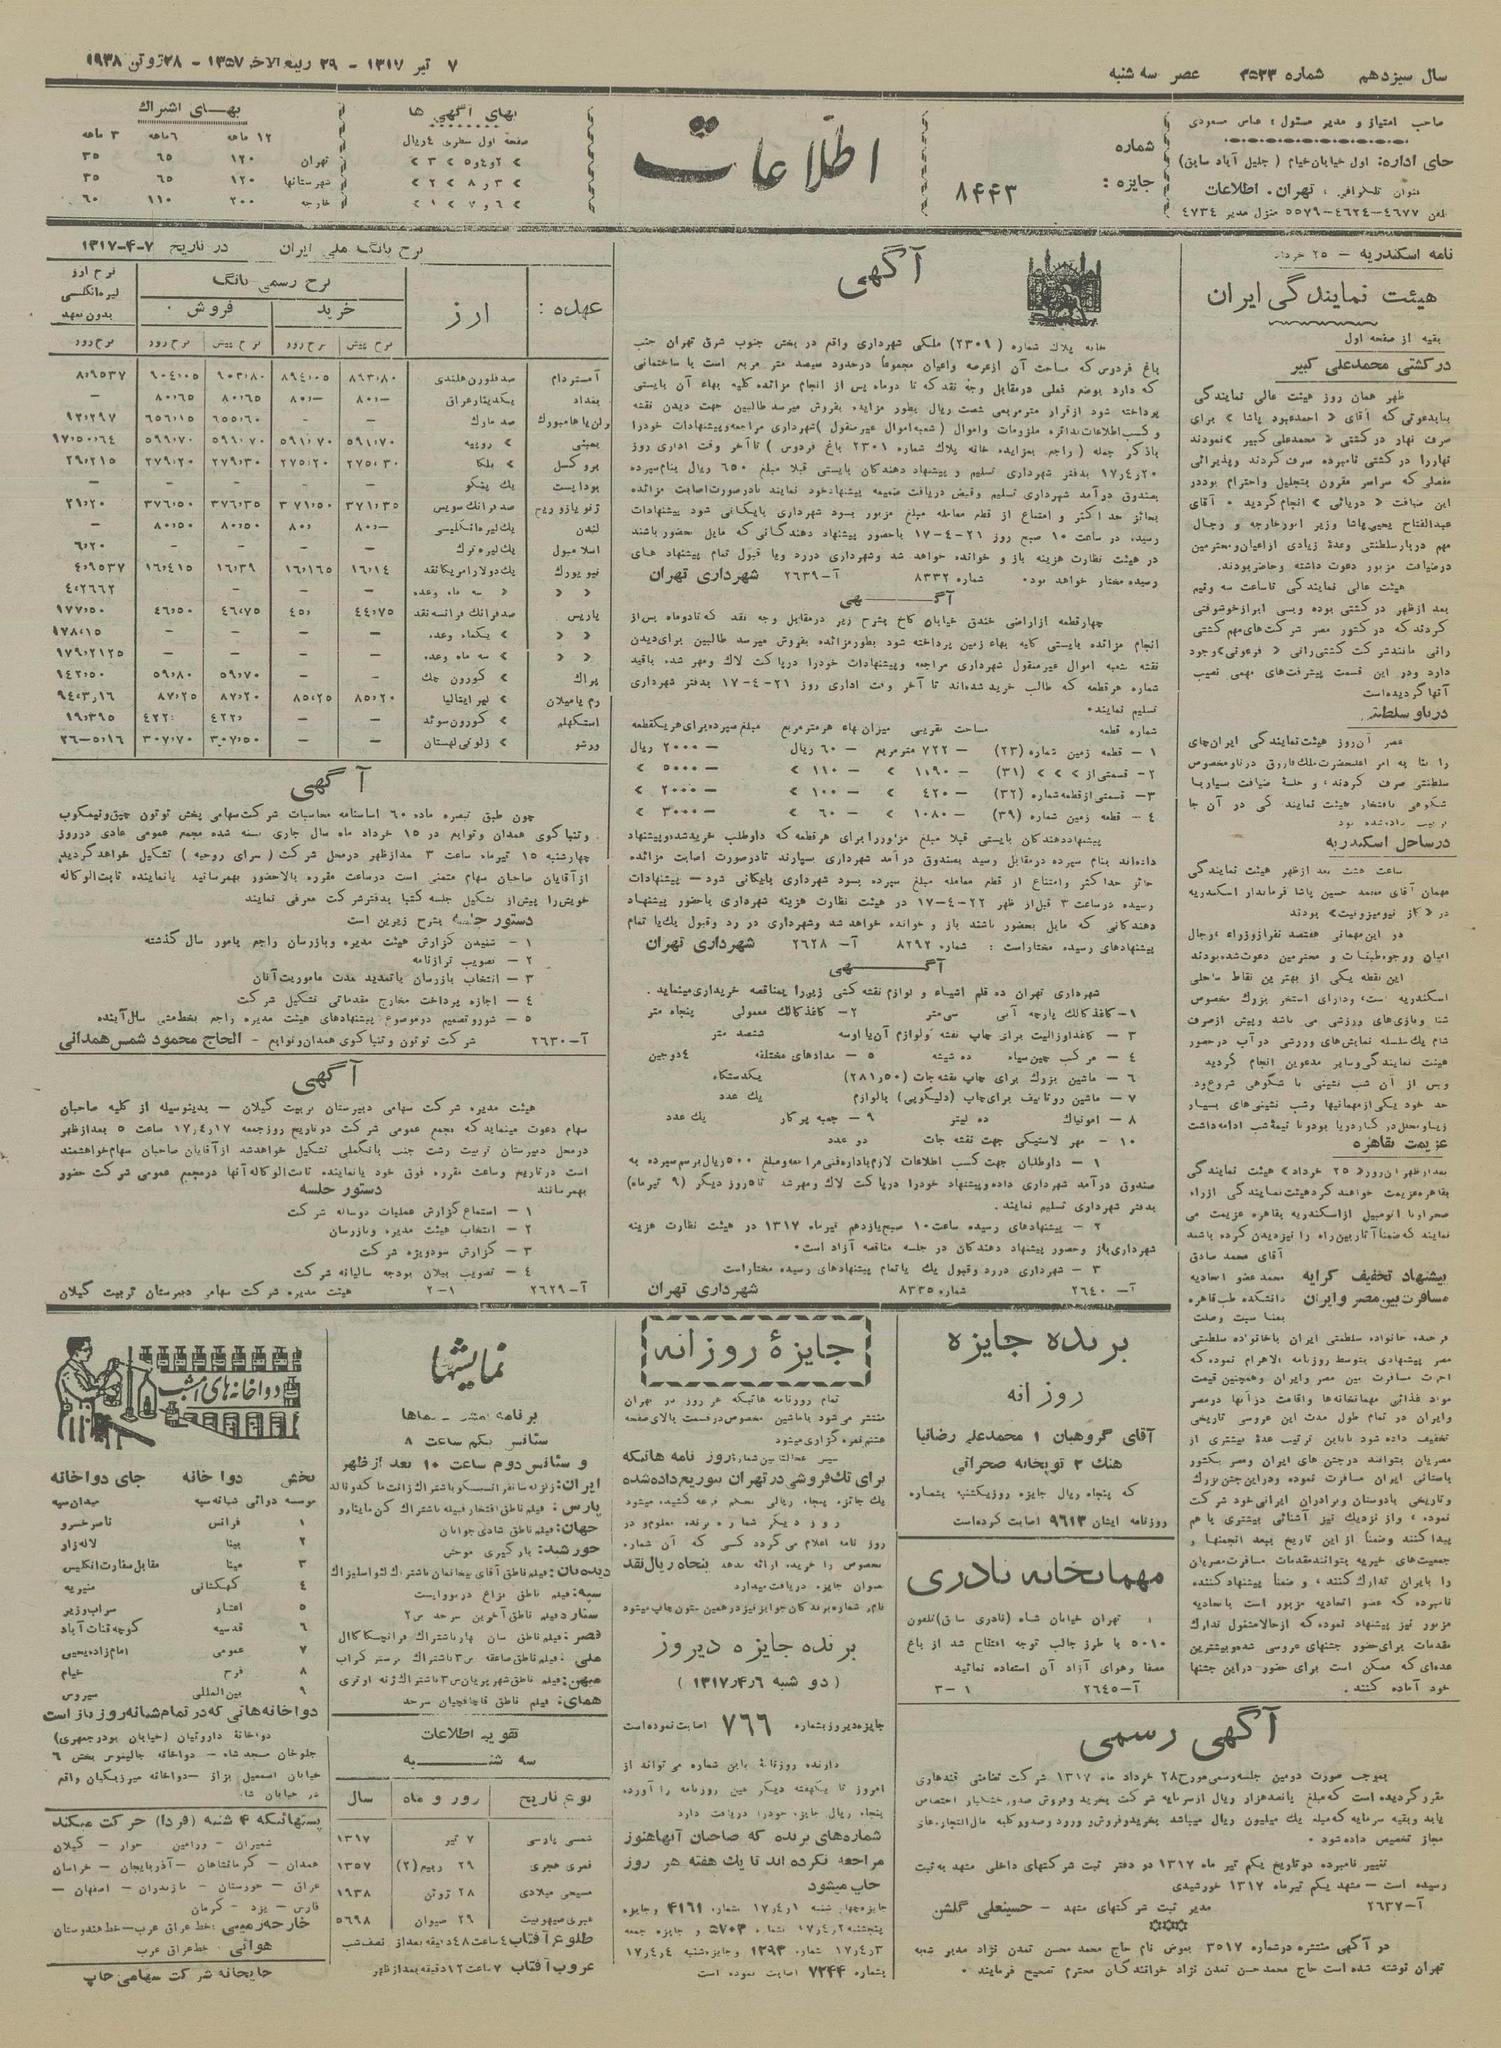 سال سیزدهم شماره ۳۵۳۳ عصر سه شنبه
۷ تیر ۱۳۱۷ - ۲۹ ربیع‌الاخر ۱۳۵۷ - ۲۸ ژوئن ۱۹۳۸
صاحب امتیاز و مدیر مسئول: عباس مسعودی
جای اداره: اول خیابان خیام (جلیل آباد سابق)
عنوان تلگرافی، تهران، اطلاعات
تلفن ۴۶۷۷-۴۶۲۴-۵۵۷۹ منزل مدیر ۴۷۳۴
شماره
جایزه:
۸۴۴۳
اطلاعات
بهای آگهی ها
صفحه اول سطری ۴ ریال
بهای اشتراك
۱۲ ماهه ۶ ماهه ۳ ماهه
تهران ۱۲۰ ۶۵ ۳۵
شهرستانها ۱۲۰ ۶۵ ۳۵
خارجه ۲۰۰ ۱۱۰ ۶۰
نامه اسکندریه - ۲۵ خرداد
هیئت نمایندگی ایران
بقیه از صفحه اول
درکشتی محمدعلی کبیر
ظهر همان روز هیئت عالی نمایندگی
بنابدعوتی که آقای « احمدعبود پاشا » برای
صرف نهار در کشتی « محمدعلی کبیر » نمودند
نهاررا در کشتی نامبرده صرف کردند وپذیرائی
مفصلی که سراسر مقرون بتجلیل واحترام بوددر
این ضیافت « دریائی » انجام گردید . آقای
عبدالفتاح یحیی پاشا وزیر امورخارجه و رجال
مهم دربارسلطنتی وعدهٔ زیادی ازاعیان ومحترمین
درضیافت مزبور دعوت داشته وحاضربودند.
هیئت عالی نمایندگی تاساعت سه ونیم
بعد ازظهر در کشتی بوده وبسی ابرازخوشوقتی
کردند که در کشور مصر شرکت‌های مهم کشتی
رانی مانندشرکت کشتی رانی « فرعونی » وجود
دارد ودر این قسمت پیشرفت‌های مهمی نصیب
آنها گردیده است
عصر آن روز هیئت نمایندگی ایران چای
را بنا به امر اعلیحضرت ملك فاروق درناو مخصوص
سلطنتی صرف کردند، و جلسهٔ ضیافت بسیار با
شکوهی بافتخار هیئت نمایندگی در آن جا
درساحل اسکندریه
ساعت هشت بعد ازظهر هیئت نمایندگی
مهمان آقای محمد حسین پاشا فرماندار اسکندریه
در این مهمانی هفتصد نفرازوزراء ورجال
اعیان ووجوه طبقات و محترمین دعوت شده بودند
این نقطه یکی از بهترین نقاط ساحلی
اسکندریه است، ودارای استخر بزرك مخصوص
شنا وبازی‌های ورزشی می باشد وپیش ازصرف
شام یك سلسله نمایش‌های ورزشی در آب درحضور
هیئت نمایندگی وسایر مدعوین انجام گردید
وپس از آن شب نشینی با شکوهی شروع ود.
عزیمت بقاهره
بعدازظهر ان روز« ۲۵ خرداد» هیئت نمایندگی
بقاهره عزیمت خواهند کرد هیئت نمایندگی ازراه
صحرا وبا اتومبیل ازاسکندریه بقاهره عزیمت می
نمایند که ضمناً آثار بین راه را نیز دیدن کرده باشند
پیشنهاد تخفیف کرایه
مسافرت بین مصر وایران
آقای محمد صادق
محمد عضو اتحادیه
دانشکده طب قاهره
بمناسبت وصلت
فرخنده خانواده سلطنتی ایران باخانواده سلطنتی
مصر پیشنهادی بتوسط روزنامه الاهرام نموده که
اجرت مسافرت بین مصر وایران وهمچنین قیمت
مواد غذائی مهمانخانه‌ها واقامت درآنها درمصر
وایران در تمام طول مدت این عروسی تاریخی
تخفیف داده شود تا باین ترتیب عدهٔ بیشتری از
مصریان بتوانند درجشن های ایران ومصر بکشور
باستانی ایران مسافرت نموده ودراین جشن بزرك
وتاریخی بادوستان وبرادران ایرانی خود شرکت
نموده، واز نزدیك نیز آشنائی بیشتری با هم
پیدا کنند وضمناً از این تاریخ ببعد انجمنها و
جمعیت‌های خیریه بتوانند مقدمات مسافرت مصریان
را بایران تدارك کنند، و ضمناً پیشنهاد کننده
نامبرده که عضو اتحادیه مزبور است باتحادیه
مزبور نیز پیشنهاد نموده که ازحالا مشغول تدارك
مقدمات برای حضور جشنهای عروسی شده وبیشترین
عده‌ای که ممکن است برای حضور دراین جشنها
خود آماده کنند.
آگهی
خانه پلاك شماره (۲۳۰۹) ملکی شهرداری واقع در بخش جنوب شرق تهران جنب
باغ فردوس که مساحت آن ازعرصه واعیان مجموعاً درحدود سیصد متر مربع است با ساختمانی
که دارد بوضع فعلی درمقابل وجه نقد که تا دوماه پس از انجام مزائده کلیه بهاء آن بایستی
پرداخته شود ازقرار مترمربعی شصت ریال بطور مزایده بفروش میرسد طالبین جهت دیدن نقشه
و کسب اطلاعات بدائره ملزومات واموال (شعبه اموال غیرمنقول) شهرداری مراجعه وپیشنهادات خودرا
باذکر جمله (راجع بمزایده خانه پلاك شماره ۲۳۰۱ باغ فردوس) تا آخر وقت اداری روز
۱۷٫۴٫۲۰ بدفتر شهرداری تسلیم و پیشنهاد دهندگان بایستی قبلا مبلغ ۶۵۰ ریال بنام سپرده
بصندوق درآمد شهرداری تسلیم وقبض دریافت ضمیمه پیشنهادخود نمایند تا درصورت اصابت مزائده
بحائز حداکثر و امتناع از قطع معامله مبلغ مزبور بسود شهرداری بایگانی شود پیشنهادات
رسیده. در ساعت ۱۰ صبح روز ۲۱-۴-۱۷ باحضور پیشنهاد دهندگانی که مایل حضور باشند
در هیئت نظارت هزینه باز و خوانده خواهد شد وشهرداری دررد ویا قبول تمام پیشنهاد های
رسیده مختار خواهد بود. شماره ۸۳۳۲ آ-۲۶۳۹ شهرداری تهران
آگهی
چهارقطعه ازاراضی خندق خیابان کاخ بشرح زیر درمقابل وجه نقد که تادوماه پس از
انجام مزائده بایستی کلیه بهاء زمین پرداخته شود بطورمزائده بفروش میرسد طالبین برای دیدن
نقشه شعبه اموال غیرمنقول شهرداری مراجعه وپیشنهادات خودرا درپاکت لاك ومهر شده باقید
شماره هرقطعه که طالب خرید شده‌اند تا آخر وقت اداری روز ۲۱-۴-۱۷ بدفتر شهرداری
تسلیم نمایند.
شماره قطعه مساحت تقریبی میزان بهاء هرمترمربع مبلغ سپرده برای هریکقطعه
۱ - قطعه زمین شماره (۲۳) - ۷۲۲ مترمربع - ۶۰ ریال - ۲۰۰۰ ریال
۲ - قسمتی از » » » (۳۱) - ۱۱۹۰ » - ۱۱۰ » - ۵۰۰۰ »
۳ - قسمتی ازقطعه شماره (۳۲) - ۴۲۰ » - ۱۰۰ » - ۲۰۰۰ »
۴ - قطعه زمین شماره (۳۹) - ۱۰۸۰ » - ۶۰ » - ۳۰۰۰ »
پیشنهاددهندگان بایستی قبلا مبلغ مزبوررا برای هرقطعه که داوطلب خریدشده وپیشنهاد
داده‌اند بنام سپرده درمقابل رسید بصندوق درآمد شهرداری بسپارند تادرصورت اصابت مزائده
حائز حداکثر وامتناع از قطع معامله مبلغ سپرده بسود شهرداری بایگانی شود - پیشنهادات
رسیده درساعت ۳ قبل از ظهر ۲۲-۴-۱۷ در هیئت نظارت هزینه شهرداری باحضور پیشنهاد
دهندگانی که مایل بحضور باشند باز و خوانده خواهد شد وشهرداری در رد وقبول یك یا تمام
پیشنهادهای رسیده مختاراست: شماره ۸۲۹۲ آ-۲۶۲۸ شهرداری تهران
آگهی
شهرداری تهران ده قلم اشیاء و لوازم نقشه کشی زیررا بمناقصه خریداری مینماید.
۱- کاغذکالك پارچه آبی سی متر ۲- کاغذکالك معمولی پنجاه متر
۳ - کاغذاوزالیت برای چاپ نقشه ولوازم آن یا اوسه ششصد متر
۴ - مرکب چین سیاه ده شیشه ۵ - مدادهای مختلفه ۴ دوجین
۶ - ماشین بزرك برای چاپ نقشه جات (۲۸۱٫۵۰) یکدستگاه
۷ - ماشین روتاتیف برای چاپ (دلیگوپی) بالوازم یك عدد
۸ - امونیاك ده لیتر ۹ - جعبه پرکار یك عدد
۱۰ - مهر لاستیکی جهت نقشه جات دو عدد
۱ - داوطلبان جهت کسب اطلاعات لازم باداره فنی مراجعه ومبلغ ۵۰۰ ریال برسم سپرده به
صندوق درآمد شهرداری داده وپیشنهاد خودرا درپاکت لاك ومهرشده تا ۵ روز دیگر (۹ تیرماه)
بدفتر شهرداری تسلیم نمایند.
۲ - پیشنهادهای رسیده ساعت ۱۰ صبح یازدهم تیرماه ۱۳۱۷ در هیئت نظارت هزینه
شهرداری باز وحضور پیشنهاد دهندگان در جلسه مناقصه آزاد است.
۳ - شهرداری دررد وقبول یك یا تمام پیشنهادهای رسیده مختاراست
آ-۲۶۴۰ شماره ۸۳۳۵ شهرداری تهران
نرخ بانك ملی ایران در تاریخ ۷-۴-۱۳۱۷
عهده: ارز نرخ رسمی بانك نرخ ارز لیره انگلیسی بدون تعهد
خرید فروش
نرخ پیش نرخ روز نرخ پیش نرخ روز نرخ روز
آمستردام صد فلورن هلندی ۸۹۳٫۸۰ ۸۹۴٫۰۵ ۹۰۳٫۸۰ ۹۰۴٫۰۵ ۸٫۹۵۳۷
بغداد یکدینارعراق ۸۰٫- ۸۰٫- ۸۰٫۶۵ ۸۰٫۶۵ -
صد مارك - - ۶۵۵٫۶۰ ۶۵۶٫۱۵
بمبئی » روپیه ۵۹۱٫۷۰ ۵۹۱٫۷۰ ۵۹۹٫۷۰ ۵۹۹٫۷۰
بروکسل » بلگا ۲۷۵٫۳۰ ۲۷۵٫۲۰ ۲۷۹٫۳۰ ۲۷۹٫۲۰ ۲۹٫۲۱۵
بوداپست یك پنگو - - - - -
ژنو یا زوریخ صد فرانك سویس ۳۷۱٫۳۵ ۳۷۱٫۵۰ ۳۷۶٫۳۵ ۳۷۶٫۵۰ ۲۱٫۲۰
لندن یك لیره انگلیسی ۸۰٫- ۸۰٫ ۸۰٫۵۰ ۸۰٫۵۰ -
اسلامبول یك لیره ترك - - - - ۶٫۲۰
نیویورك یك دولار امریکا نقد ۱۶٫۱۴ ۱۶٫۱۶۵ ۱۶٫۳۹ ۱۶٫۴۱۵ ۴٫۹۵۳۷
« « » سه ماه وعده ۴٫۲۶۶۲
پاریس صدفرانك فرانسه نقد ۴۴٫۷۵ ۴۵٫ ۴۶٫۷۵ ۴۶٫۵۰ ۱۷۷٫۵۰
« « » یکماه وعده - - - - ۱۷۸٫۱۵
« « » سه ماه وعده - - - - ۱۷۹٫۲۱۲۵
پراك » کورون چك - - ۵۹٫۷۰ ۵۹٫۸۰ ۱۴۲٫۵۰
رم یا میلان » لیر ایتالیا ۸۵٫۲۰ ۸۵٫۲۵ ۸۷٫۲۰ ۸۷٫۲۵ ۹۴٫۳٫۱۶
استکهلم » کورون سوئد - - ۴۲۲٫ ۴۲۲٫ ۱۹٫۳۹۵
ورشو » زلوتی لهستان - - ۳۰۷٫۵۰ ۳۰۷٫۷۰ ۲۶-۵٫۱۶
آگهی
چون طبق تبصره ماده ۶۰ اساسنامه محاسبات شرکت سهامی پخش توتون چپق ونیمکوب
وتنباکوی همدان وتوابع در ۱۵ خرداد ماه سال جاری بسته شده مجمع عمومی عادی درروز
چهارشنبه ۱۵ تیرماه ساعت ۳ بعدازظهر درمحل شرکت (سرای روحیه) تشکیل خواهدگردید
ازآقایان صاحبان سهام متمنی است درساعت مقرره بالا حضور بهمرسانید یا نماینده ثابت الوکاله
خویش را پیش از تشکیل جلسه کتباً بدفتر شرکت معرفی نمایند
دستور جلسه بشرح زیرین است
۱ - شنیدن گزارش هیئت مدیره وبازرسان راجع بامور سال گذشته
۲ - تصویب ترازنامه
۳ - انتخاب بازرسان یا تمدید مدت ماموریت آنان
۴ - اجازه پرداخت مخارج مقدماتی تشکیل شرکت
۵ - شور و تصمیم در موضوع پیشنهادهای هیئت مدیره راجع بخط مشی سال آینده
آ-۲۶۳۰ شرکت توتون وتنباکوی همدان وتوابع - الحاج محمود شمس همدانی
آگهی
هیئت مدیره شرکت سهامی دبیرستان تربیت گیلان - بدینوسیله از کلیه صاحبان
سهام دعوت مینماید که مجمع عمومی شرکت درتاریخ روزجمعه ۱۷٫۴٫۱۷ ساعت ۵ بعدازظهر
درمحل دبیرستان تربیت رشت جنب بانك ملی تشکیل خواهدشد ازآقایان صاحبان سهام خواهشمند
است درتاریخ وساعت مقرره فوق خود یا نماینده ثابت الوکاله آنها درمجمع عمومی شرکت حضور
بهمرسانند دستور جلسه
۱ - استماع گزارش عملیات دوساله شرکت
۲ - انتخاب هیئت مدیره وبازرسان
۳ - گزارش سودویژه شرکت
۴ - تصویب بیلان بودجه سالیانه شرکت
آ-۲۶۲۹ ۲-۱ هیئت مدیره شرکت سهامی دبیرستان تربیت گیلان
برنده جایزه
روزانه
آقای گروهبان ۱ محمدعلی رضانیا
هنك ۲ توپخانه صحرائی
که پنجاه ریال جایزه روزیکشنبه بشماره
روزنامه ایشان ۹۶۱۳ اصابت کرده است
مهمانخانه نادری
تهران خیابان شاه (نادری سابق) تلفون
۵۰۱۰ با طرز جالب توجه افتتاح شد از باغ
مصفا وهوای آزاد آن استفاده نمائید
آ-۲۶۴۵ ۱-۳
آگهی رسمی
بموجب صورت دومین جلسه رسمی مورخ ۲۸ خرداد ماه ۱۳۱۷ شرکت تضامنی قندهاری
مقررگردیده است که مبلغ پانصدهزار ریال ازسرمایه شرکت بخرید وفروش صدورخشکبار اختصاص
یابد وبقیه سرمایه که مبلغ یك میلیون ریال میباشد بخریدوفروش و ورود وصدورکلیه مال التجاره‌های
مجاز تخصیص داده شود.
تغییر نامبرده دوتاریخ یکم تیر ماه ۱۳۱۷ در دفتر ثبت شرکتهای داخلی مشهد به ثبت
رسیده است - مشهد یکم تیرماه ۱۳۱۷ خورشیدی
آ-۲۶۳۷ مدیر ثبت شرکتهای مشهد - حسینعلی گلشن
در آگهی منتشره درشماره ۳۵۱۷ بعوض نام حاج محمد محسن تمدن نژاد مدیر شعبه
تهران نوشته شده است حاج محمدحسن تمدن نژاد خوانندگان محترم تصحیح فرمایند.
جایزهٔ روزانه
تمام روزنامه هائیکه هر روز در تهران
منتشر می‌شود با ماشین مخصوص درقسمت بالای صفحه
هشتم نمره گزاری میشود
برای تك فروشی در تهران توزیع داده شده
یك جایزه پنجاه ریالی بحکم قرعه کشیده میشود
روز دیگر شماره برنده معلوم و در
روز نامه اعلام می‌گردد کسی که آن شماره
مخصوص را خریده ارائه بدهد پنجاه ریال نقد
بعنوان جایزه دریافت میدارد
نام و شماره برندگان جوایز نیز در همین ستون چاپ میشود
برنده جایزه دیروز
(دو شنبه ۱۳۱۷٫۴٫۶)
جایزه دیروز بشماره ۷۶۶ اصابت نموده است
دارنده روزنامهٔ باین شماره می‌تواند از
امروز تا یکهفته دیگر عین روزنامه را آورده
پنجاه ریال جایزه خودرا دریافت دارد
شماره‌های برنده که صاحبان آنها هنوز
مراجعه نکرده اند تا یك هفته هر روز
چاپ میشود
جایزه چهار شنبه ۱۷٫۴٫۱ بشماره ۴۱۶۱ و جایزه
پنجشنبه ۱۷٫۴٫۲ بشماره ۵۷۰۳ و جایزه جمعه
۱۷٫۴٫۳ شماره ۱۳۹۳ وجایزه شنبه ۱۷٫۴٫۴
بشماره ۷۲۴۴ اصابت نموده است
نمایشها
سئانس یکم ساعت ۸
و سئانس دوم ساعت ۱۰ بعد از ظهر
ایران: زلزله سانفرانسسکو باشتراك ژانت ماکدونالد
پارس: فیلم ناطق افتخار قبیله باشتراك کن ماینارو
جهان: فیلم ناطق شادی جوانان
خورشید: بازگیری موحش
دیده‌بان: فیلم ناطق آقای بیخانمان باشتراك لئواسلیزاك
سپه: فیلم ناطق نزاع دربووایست
ستاره فیلم ناطق آخرین سرحد س۲
قصر: فیلم ناطق سان باشتراك فرانچسکاگال
ملی: فیلم ناطق صاعقه س۳ باشتراك برستر کراب
میهن: فیلم ناطق شهر پریان س۳ باشتراك ژنه اوتری
همای: فیلم ناطق قاچاقچیان سرحد
تقویم اطلاعات
سه شنبه
نوع تاریخ روز و ماه سال
شمسی پارسی ۷ تیر ۱۳۱۷
قمری هجری ۲۹ ربیع (۲) ۱۳۵۷
مسیحی میلادی ۲۸ ژوئن ۱۹۳۸
عبری صیهونیت ۲۹ سیوان ۵۶۹۸
طلوع آفتاب ۴ ساعت ۴۸ دقیقه بعداز نصف شب
غروب آفتاب ۷ ساعت ۱۲ دقیقه بعداز ظهر
دواخانه‌های امشب
بخش دوا خانه جای دواخانه
موسسه دوائی شبانه سپه میدان سپه
۱ فرانس ناصرخسرو
۲ بینا لاله‌زار
۳ مینا مقابل سفارت انگلیس
۴ کهکشانی منیریه
۵ اعتبار سراب وزیر
۶ قدسیه کوچه قنات آباد
۷ عمومی امام‌زاده یحیی
۸ فرخ خیام
۹ بین‌المللی سیروس
دواخانه هائی که در تمام شبانه روز باز است
دواخانهٔ داروئیان (خیابان بوذرجمهری)
جلوخان مسجد شاه - دواخانه جالینوس بخش ۶
خیابان اسمعیل بزاز - دواخانه میرزیگیان واقع
در خیابان شاه
پستهائیکه ۴ شنبه (فردا) حرکت میکند
شمیران - ورامین - خوار - گیلان
همدان - کرمانشاهان - آذربایجان - خراسان
عراق - خوزستان - مازندران - اصفهان -
فارس - یزد - کرمان
خارجه زمینی: خط عراق عرب - خط هندوستان
هوائی: خط عراق عرب
چاپخانه شرکت سهامی چاپ